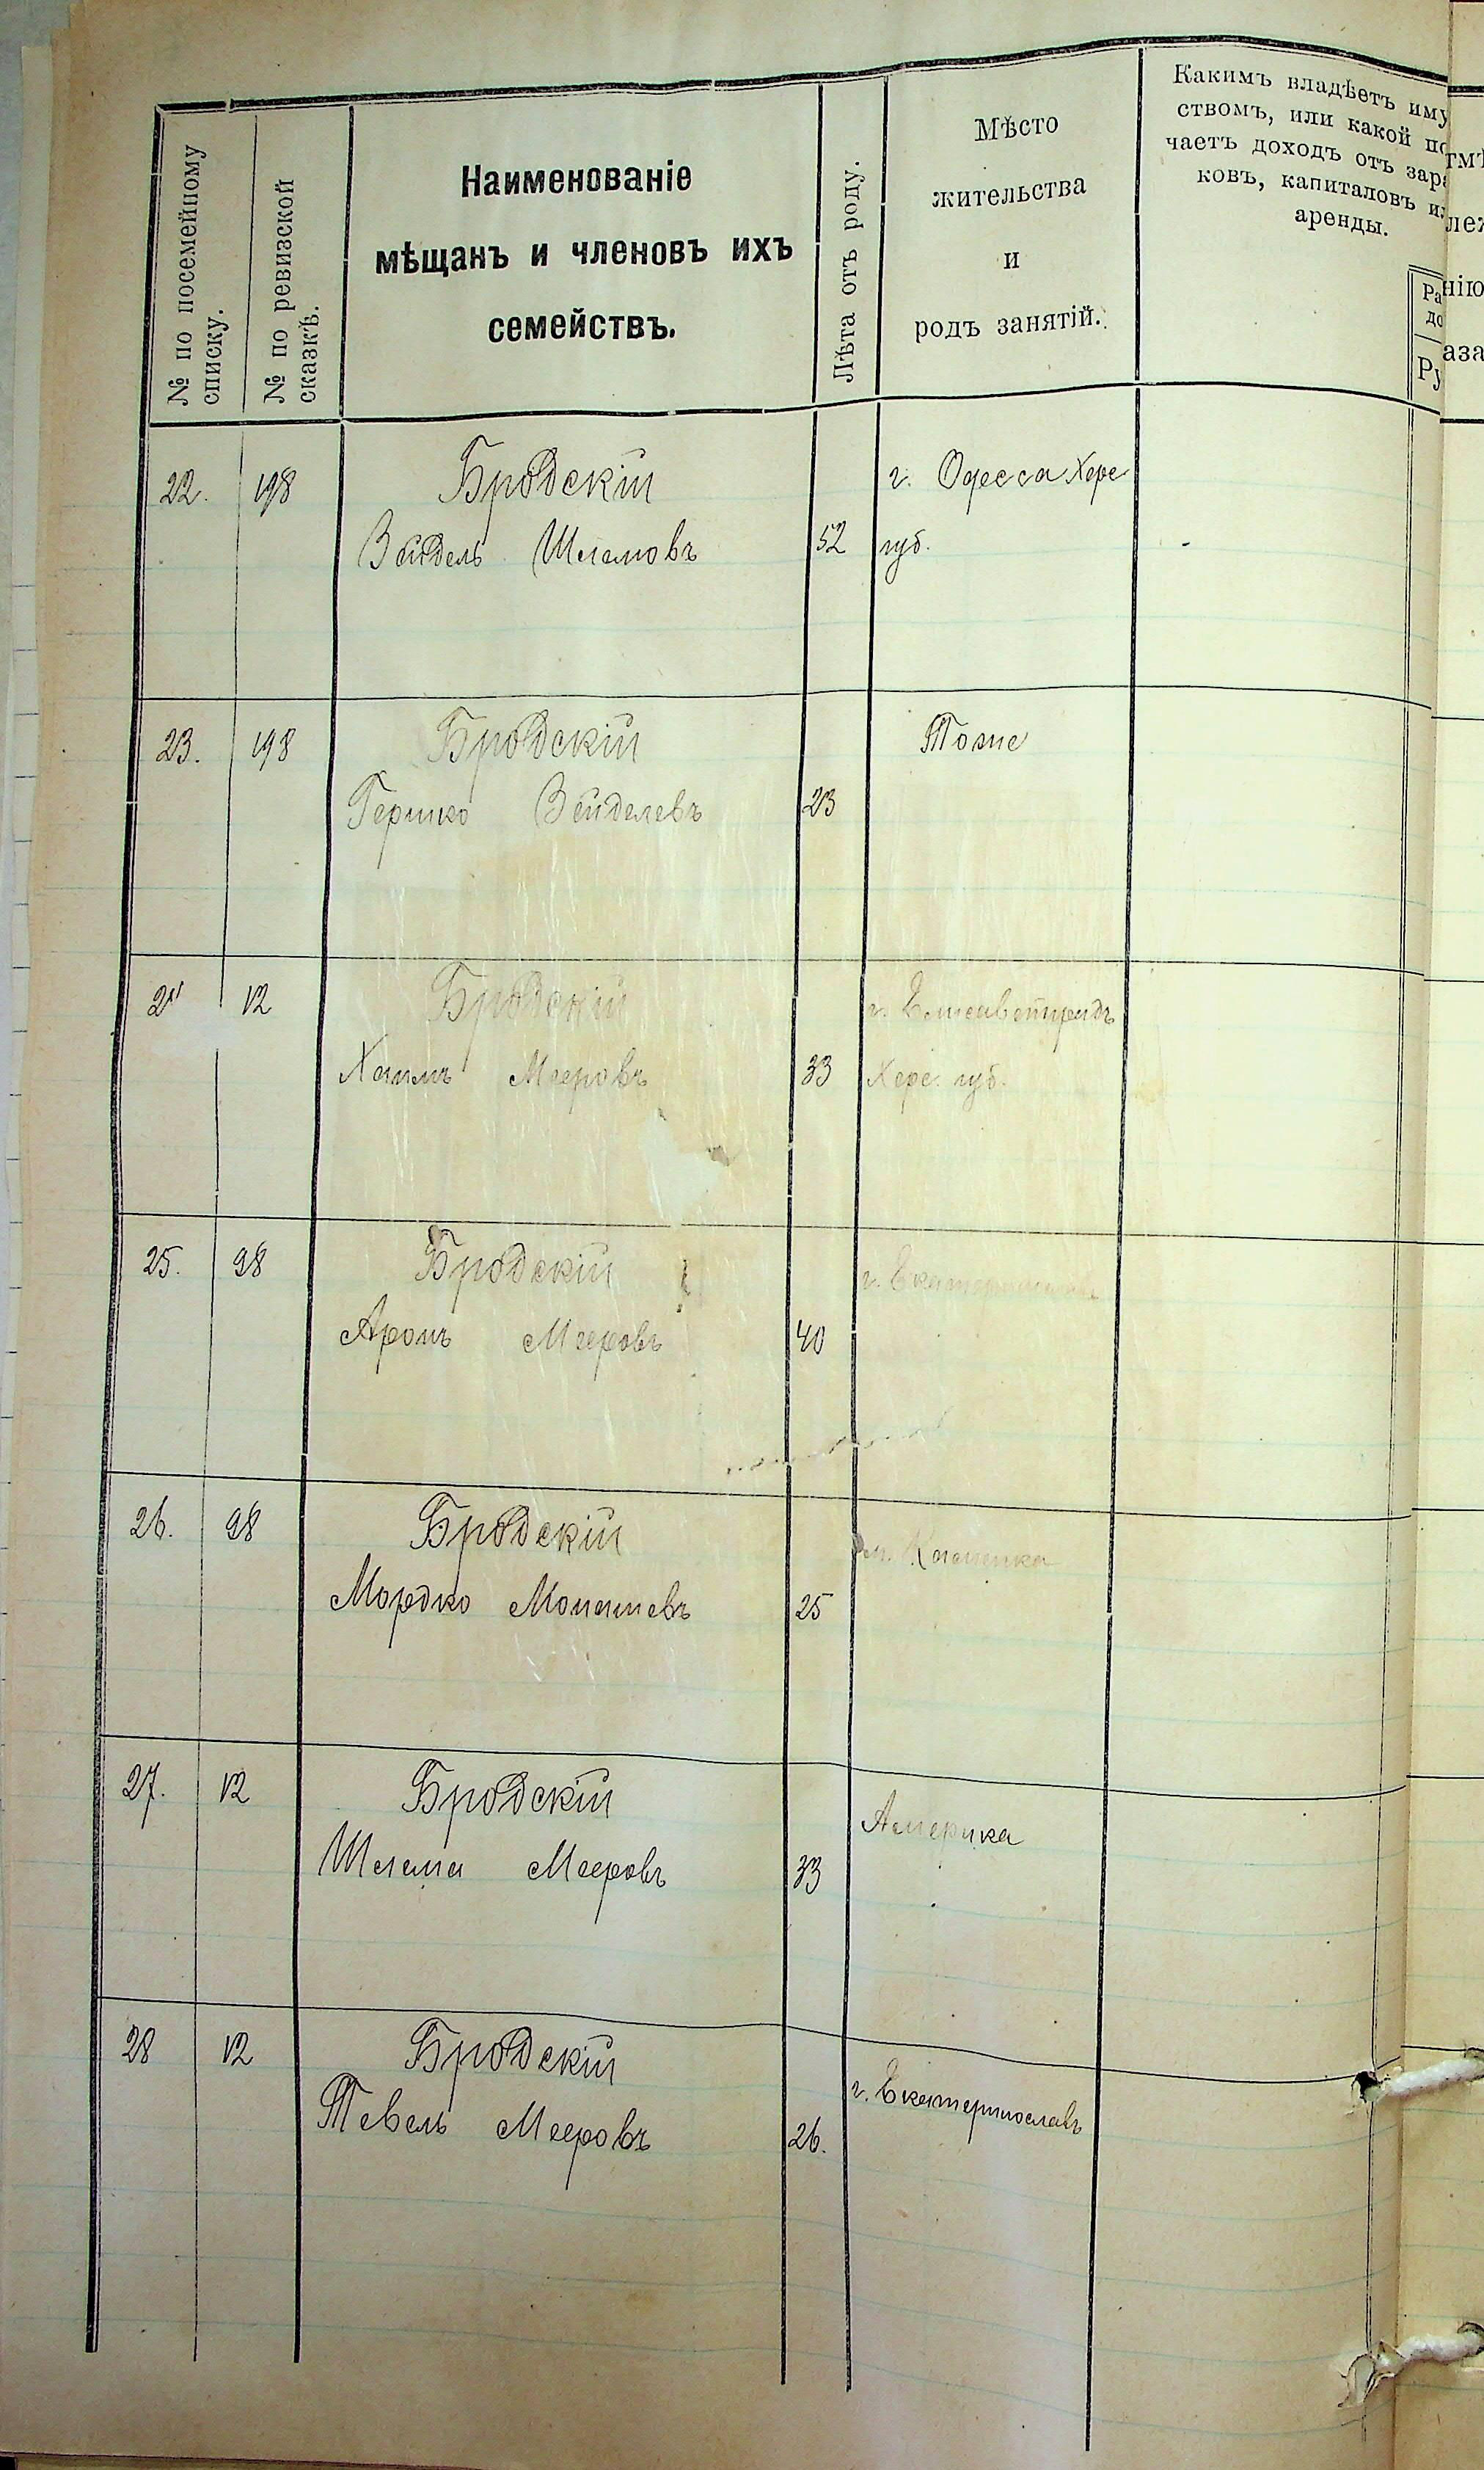 № по посемейному
списку.
№ по ревизской
сказкѣ.
Наименованіе
мѣщанъ и членовъ ихъ
семействъ.
Лѣта отъ роду.
Мѣсто
жительства
и
родъ занятій.
Какимъ владѣетъ иму
ствомъ, или какой по
чаетъ доходъ отъ зара
ковъ, капиталовъ и
аренды.
22. 198 Бродскій г. Одесса Херс
Зейдель Шлемовъ 52 губ.
23. 198 Бродскій Тоже
Гершко Зейделевъ 23
24 12 Бродскій г. Елисаветградъ
Хаимъ Мееровъ 33 Херс. губ.
25. 98 Бродскій г. Екатеринославъ
Аронъ Мееровъ 40
26. 98 Бродскій м. Каменка
Мордко Монашевъ 25
27. 12 Бродскій Америка
Шлема Мееровъ 33
28 12 Бродскій г. Екатеринославъ
Тевель Мееровъ 26.